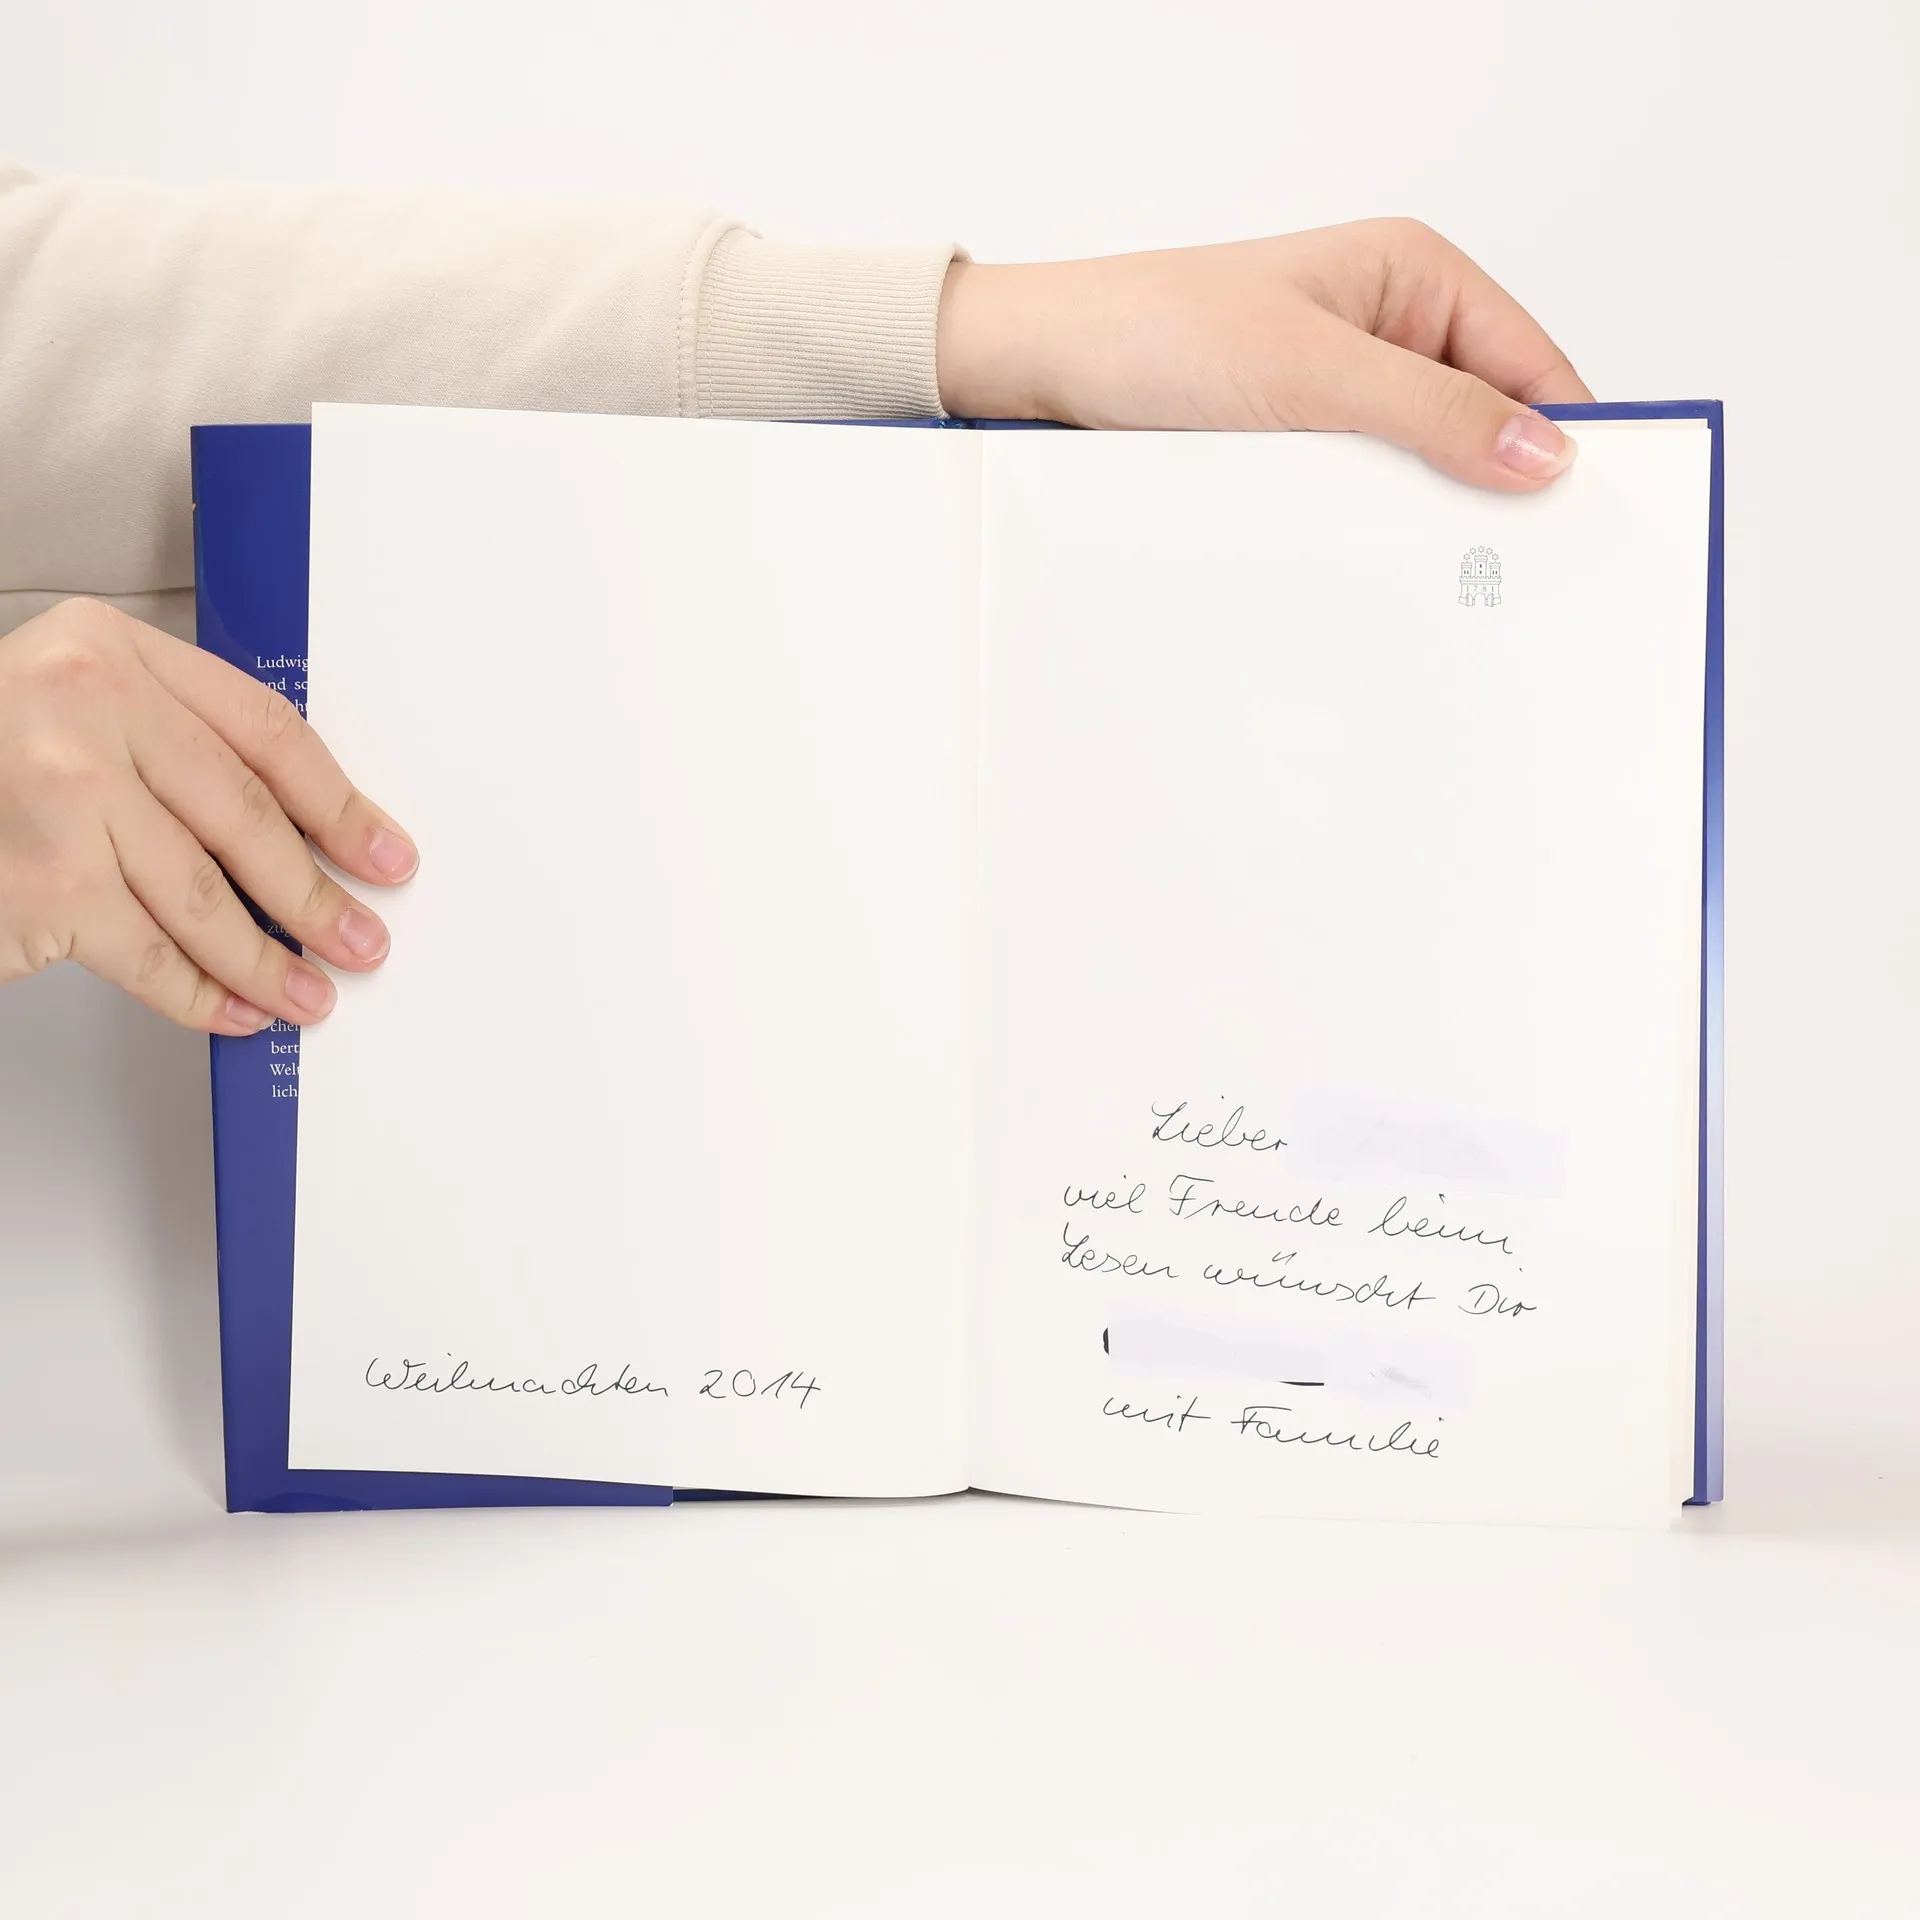 Ludwig
und sc
cht
zug
cher
bert
Welt
lich
Weihnachten 2014
1781
Lieber
viel Freude beim
Lesen wünscht Dir
mit Familie